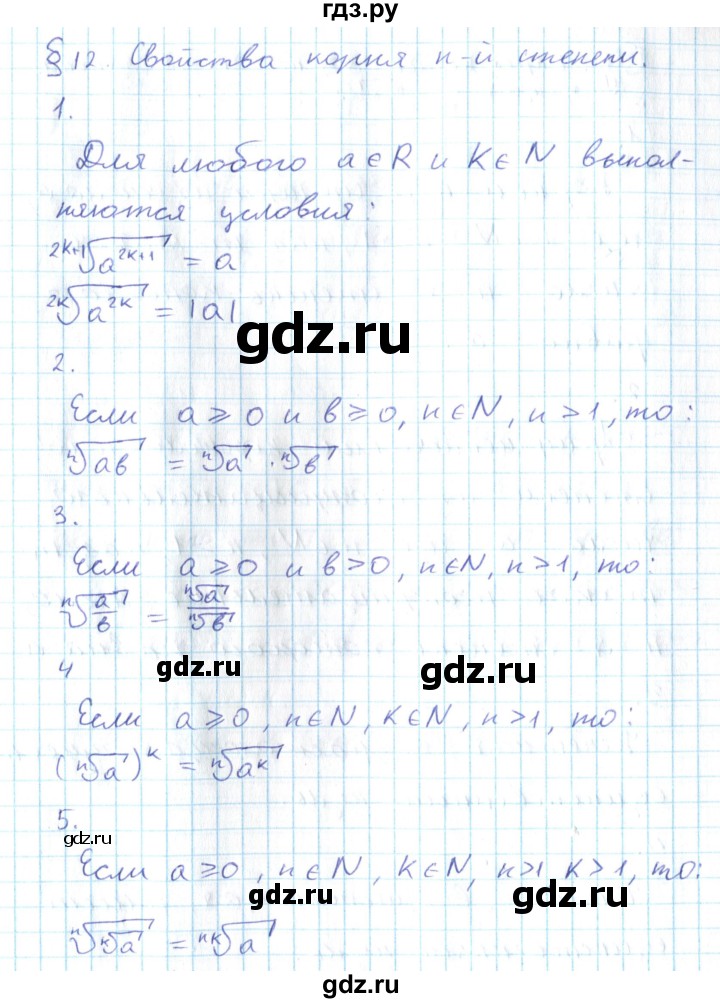 гдз.ру
§12. Свойства корня n-й степени.
1.
Для любого a∈R и K∈N выпол-
няются условия:
²ᵏ⁺¹√a²ᵏ⁺¹ = a
²ᵏ√a²ᵏ = |a|
gdz.ru
2.
Если a ⩾ 0 и в ⩾ 0, n∈N, n >1, то:
ⁿ√aв = ⁿ√a · ⁿ√в
3.
Если a ⩾ 0 и в > 0, n∈N, n>1, то:
ⁿ√(a/в) = ⁿ√a/ⁿ√в
gdz.ru
gdz.ru
4
Если a ⩾ 0, n∈N, K∈N, n>1, то:
(ⁿ√a)ᵏ = ⁿ√aᵏ
5.
gdz.ru
Если a ⩾ 0, n∈N, K∈N, n>1 K>1, то:
gdz.ru
gdz.ru
ⁿ√ᵏ√a = ⁿᵏ√a
gdz.ru